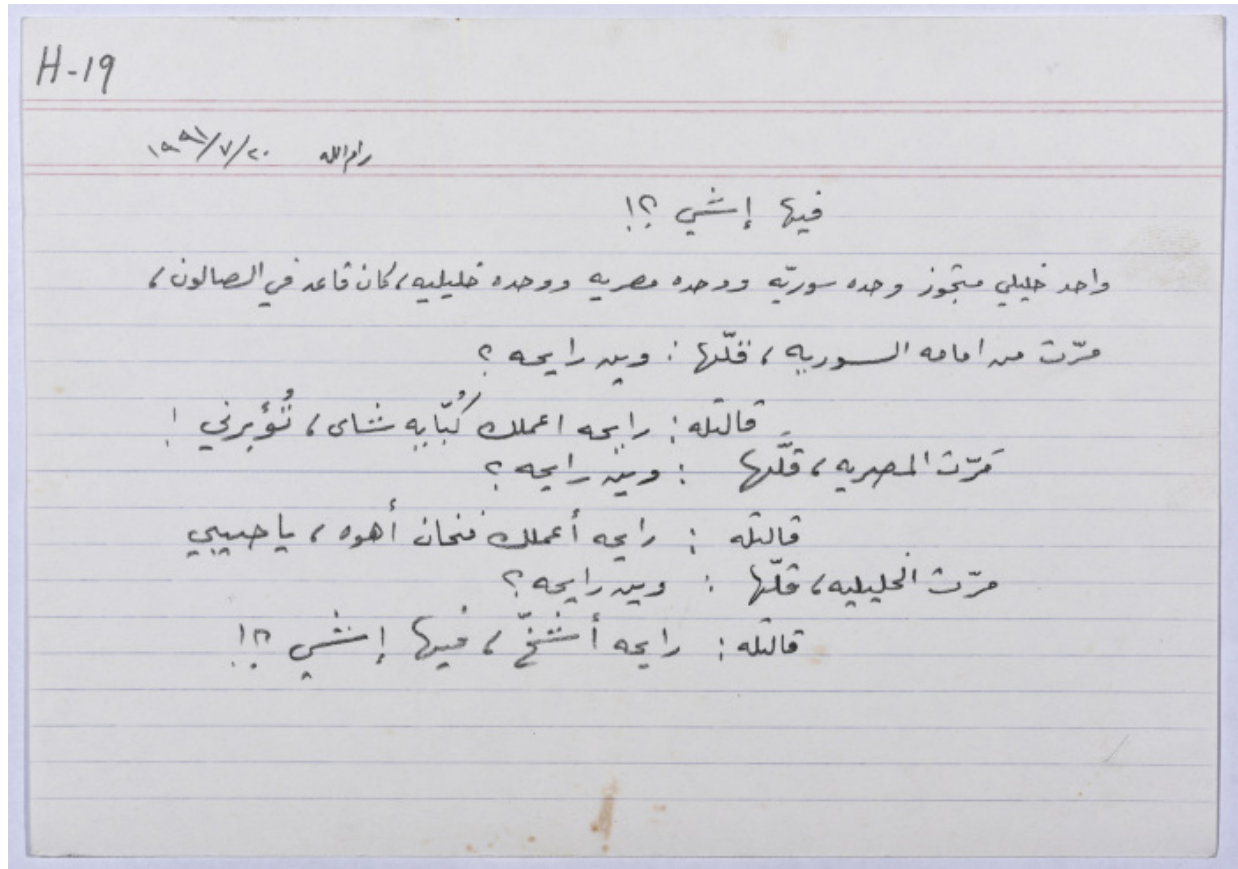 H-19
رام الله ٢٠/٧/١٩٩١
فيها إشي ؟!
واحد خليلي متجوز وحده سوريّه ووحده مصريه ووحده خليليه، كان قاعد في الصالون،
مرّت من امامه السوريه، قلّها : وين رايحه ؟
قالتله : رايحه اعملك كُبّايه شاي، تُؤبرني !
مَرّت المصريه، قلَّها : وين رايحه ؟
قالتله : رايحه أعملك فنجان أهوه، يا حبيبي
مرّت الخليليه، قلّها : وين رايحه ؟
قالتله : رايحه أشخّ، فيها إشي ؟!